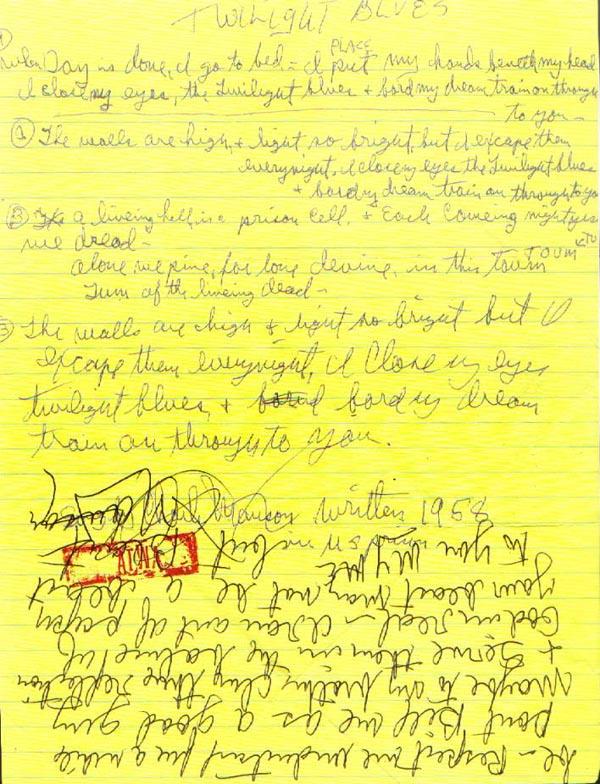 TWILIGHT BLUES
1
when Day is done, I go to bed - I put PLACE my hands beneth my head
I close my eyes, the Twilight blues + bord my dream train on through
to you -
2 The walls are high, + light so bright but I excape them
everynight. I close my eyes the Twilight blues
+ bord my dream train on through to yo
3 a liveing hell, is a prison cell. + Each Comeing night
we dread -
alone we pine, for love devine, in this town
Tum of the liveing dead -
3 The walls are high + light so bright but I
excape them everynight, I Close my eyes
twilight blues, + bord my dream
train on through to you.
Song by Charles Manson written 1958
in U S prison
be - Respect me understand for a while
Dont Bill me as a good guy
Maybe to my brother, Clay thru reflection
+ Serve them in the balance of
God in Real - I Ran out of paper
your beat may not be a beat
to you